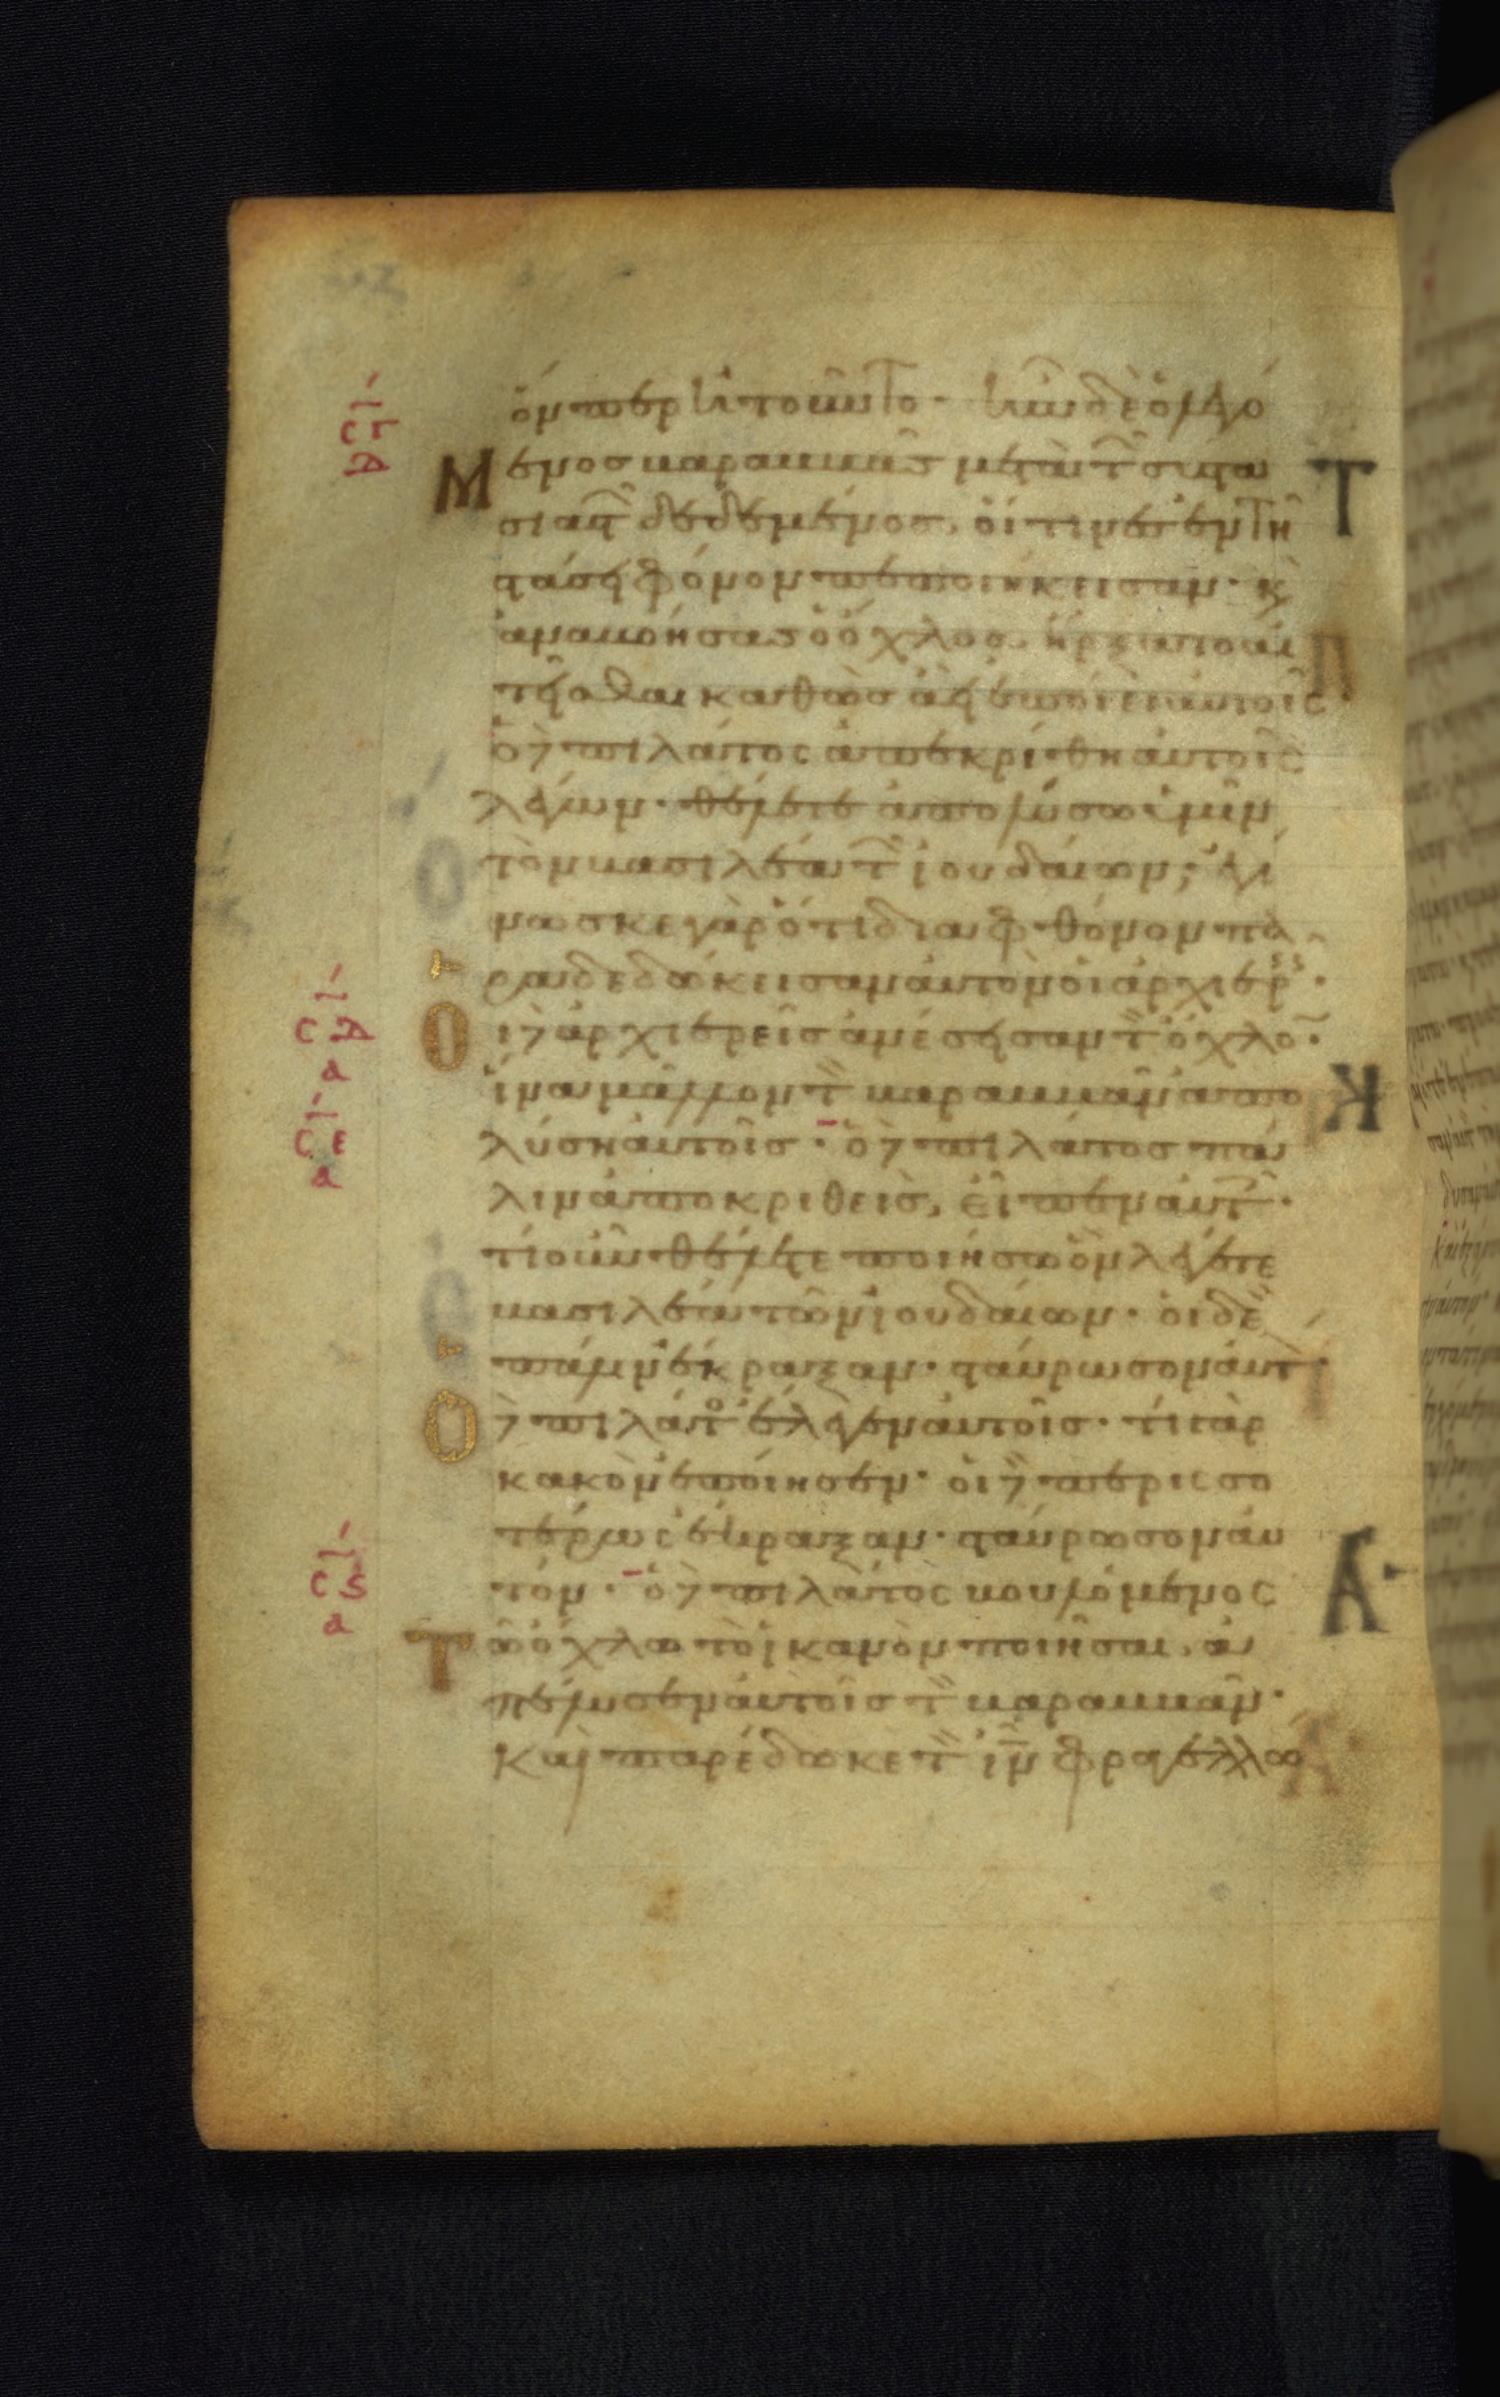 ὅνπερ ἠτοῦντο· ἦν δὲ ὁ λεγό
Μενος βαραββᾶς μετὰ τῶν συστα
σιαστῶν δεδεμένος, οἵτινες ἐν τῇ
στάσει φόνον πεποιήκεισαν· κ
ἀναβοήσας ὁ ὄχλος, ἤρξατο αἰ
τεῖσθαι καθὼς ἀεὶ ἐποίει αὐτοῖς
ὁ δὲ πιλάτος ἀπεκρίθη αὐτοῖς
λέγων· θέλετε ἀπολύσω ὑμῖν
τὸν βασιλέα τῶν ἰουδαίων; ἐγί
νωσκε γὰρ ὅτι διὰ φθόνον πα
ραδεδώκεισαν αὐτὸν οἱ ἀρχιερεῖς·
Οἱ δὲ ἀρχιερεῖς ἀνέσεισαν τὸν ὄχλον·
ἵνα μᾶλλον τὸν βαραββᾶν ἀπο
λύσῃ αὐτοῖς· ὁ δὲ πιλάτος πά
λιν ἀποκριθεὶς, εἶπεν αὐτοῖς·
τί οὖν θέλετε ποιήσω ὃν λέγετε
βασιλέα τῶν ἰουδαίων· οἱ δὲ
πάλιν ἔκραξαν· σταύρωσον αὐτόν·
Ὁ δὲ πιλάτος ἔλεγεν αὐτοῖς· τί γὰρ
κακὸν ἐποίησεν· οἱ δὲ περισσο
τέρως ἔκραξαν· σταύρωσον αὐ
τόν· ὁ δὲ πιλάτος βουλόμενος
Τῷ ὄχλῳ τὸ ἱκανὸν ποιῆσαι, ἀ
πέλυσεν αὐτοῖς τὸν βαραββᾶν·
καὶ παρέδωκε τὸν ιν φραγελλώ